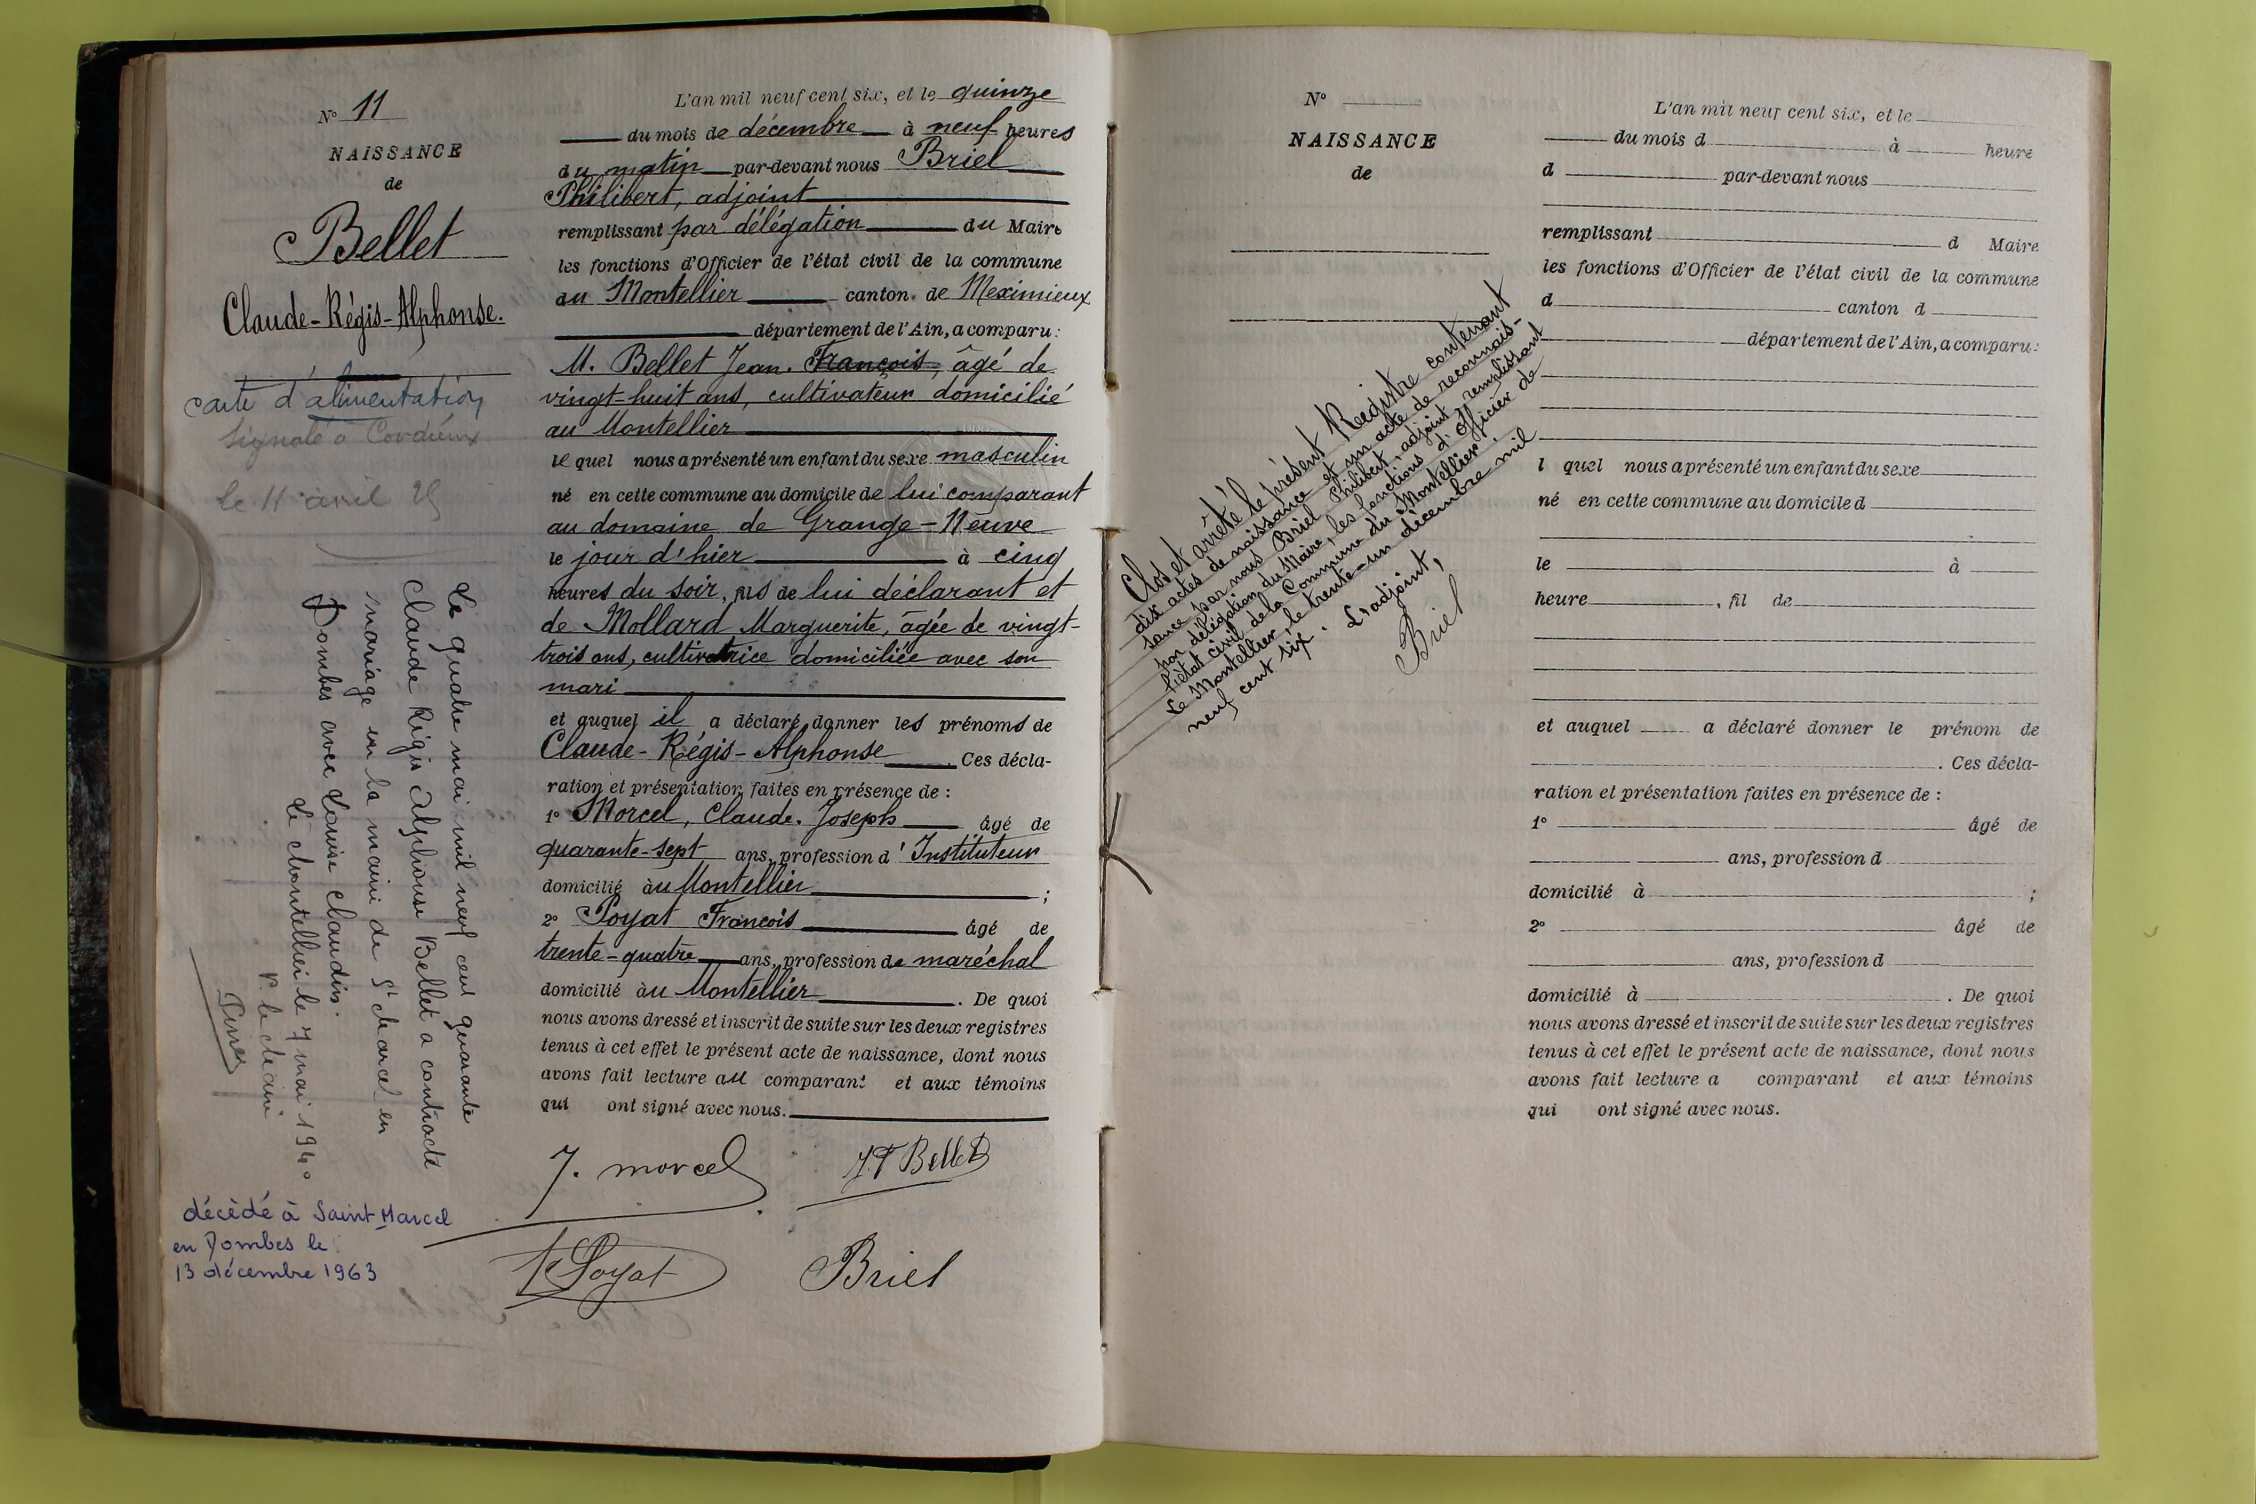 N° 11
NAISSANCE
de
Bellet
Claude-Régis-Alphonse.
carte d'alimentation
signalé à Cordieux
le 11 avril
Le quatre mai mil neuf cent quarante
Claude Régis Alphonse Bellet a contracté
mariage en la mairie de St Marcel en
Dombes avec Louise Claudin.
Le Montellier le 7 mai 1940
P. le Maire
décédé à Saint Marcel
en Dombes le
13 décembre 1963
L'an mil neuf cent six, et le quinze
du mois de décembre à neuf heures
du matin par-devant nous Briel
Philibert, adjoint
remplissant par délégation du Maire
les fonctions d'Officier de l'état civil de la commune
du Montellier canton de Meximieux
département de l'Ain, a comparu :
M. Bellet Jean. François, âgé de
vingt-huit ans, cultivateur domicilié
au Montellier
lequel nous a présenté un enfant du sexe masculin
né en cette commune au domicile de lui comparant
au domaine de Grange-Neuve
le jour d'hier à cinq
heures du soir, fils de lui déclarant et
de Mollard Marguerite, âgée de vingt-
trois ans, cultivatrice domiciliée avec son
mari
et auquel il a déclaré donner les prénoms de
Claude-Régis-Alphonse. Ces décla-
ration et présentation faites en présence de :
1° Morcel, Claude. Joseph âgé de
quarante-sept ans, profession d'Instituteur
domicilié au Montellier ;
2° Poyat François âgé de
trente-quatre ans, profession de maréchal
domicilié au Montellier. De quoi
nous avons dressé et inscrit de suite sur les deux registres
tenus à cet effet le présent acte de naissance, dont nous
avons fait lecture au comparant et aux témoins
qui ont signé avec nous.
J. morcel J.F Bellet
F Poyat Briel
Clos et arrêté le présent Registre contenant
dix actes de naissance et un acte de reconnais-
sance par nous Briel Philibert, adjoint, remplissant
par délégation du Maire, les fonctions d'officier de
l'état civil de la Commune du Montellier.
Le Montellier, le trente-un décembre mil
neuf cent six. L'adjoint,
Briel
N°
NAISSANCE
de
L'an mil neuf cent six, et le
du mois d à heure
d par-devant nous
remplissant d Maire
les fonctions d'Officier de l'état civil de la commune
d canton d
département de l'Ain, a comparu :
l quel nous a présenté un enfant du sexe
né en cette commune au domicile d
le à
heure , fil de
et auquel a déclaré donner le prénom de
. Ces décla-
ration et présentation faites en présence de :
1° âgé de
ans, profession d
domicilié à ;
2° âgé de
ans, profession d
domicilié à . De quoi
nous avons dressé et inscrit de suite sur les deux registres
tenus à cet effet le présent acte de naissance, dont nous
avons fait lecture a comparant et aux témoins
qui ont signé avec nous.